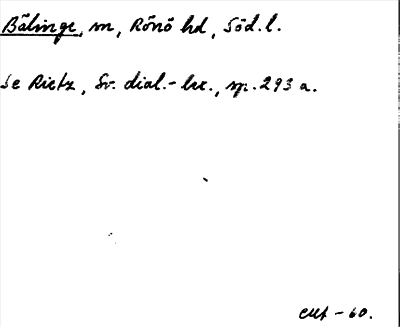 Bälinge, m, Rönö hd, Söd.l.
Se Rietz, Sv. dial.-lex., sp. 293 a.
-60.